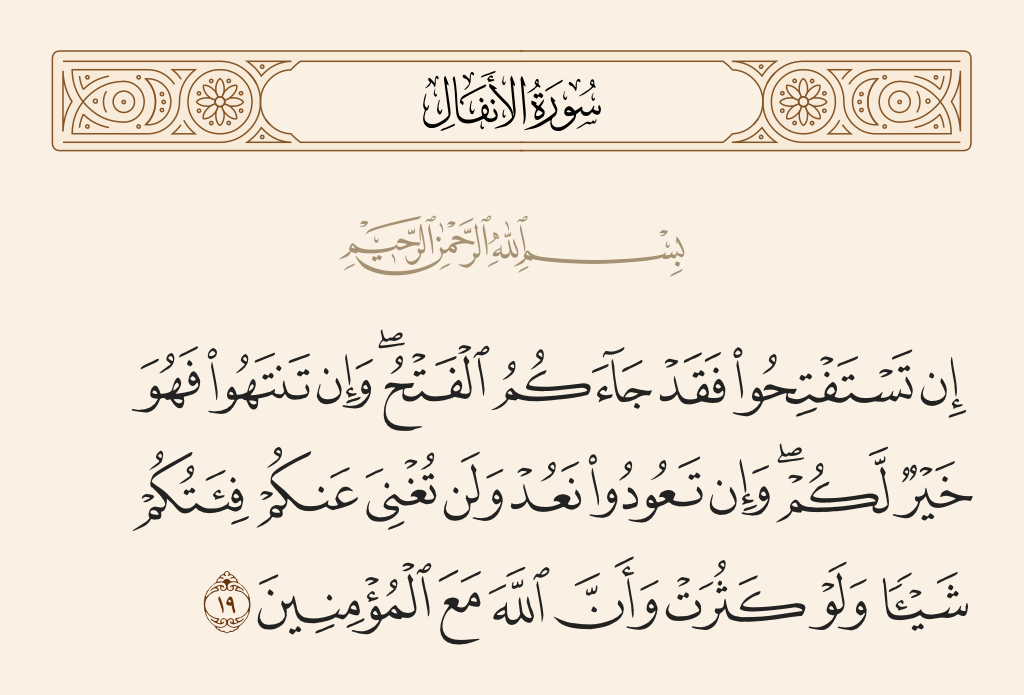 سُورَةُ الأَنفَالِ
بِسْمِ ٱللَّهِ ٱلرَّحْمَٰنِ ٱلرَّحِيمِ
إِن تَسْتَفْتِحُوا۟ فَقَدْ جَآءَكُمُ ٱلْفَتْحُ ۖ وَإِن تَنتَهُوا۟ فَهُوَ
خَيْرٌ لَّكُمْ ۖ وَإِن تَعُودُوا۟ نَعُدْ وَلَن تُغْنِىَ عَنكُمْ فِئَتُكُمْ
شَيْـًٔا وَلَوْ كَثُرَتْ وَأَنَّ ٱللَّهَ مَعَ ٱلْمُؤْمِنِينَ ١٩